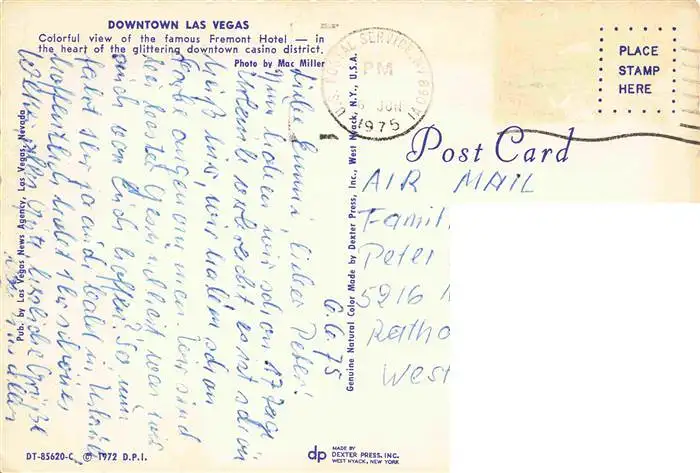 DOWNTOWN LAS VEGAS
Colorful view of the famous Fremont Hotel — in
the heart of the glittering downtown casino district.
Photo by Mac Miller
Pub. by Las Vegas News Agency, Las Vegas, Nevada
6.6.75
Liebe Gummi, lieber Peter!
wir schon 17 Tage
Urlaub es ist schon
heiß hier, wir haben schon
angenommen. Wir sind
bei bester Gesundheit, was wir
auch von Euch hoffen. So nun
fahrt Ihr ja auch bald in Urlaub
hoffentlich habt Ihr schönes
Wetter. Alles Gute, herzliche Grüße
von uns allen
DT-85620-C © 1972 D.P.I.
dp MADE BY
DEXTER PRESS, INC.
WEST NYACK, NEW YORK
Genuine Natural Color Made by Dexter Press, Inc., West Nyack, N.Y., U.S.A.
U.S. POSTAL SERVICE
PM
JUN
1975
PLACE
STAMP
HERE
Post Card
AIR MAIL
Famil
Peter
5216
Ratho
West